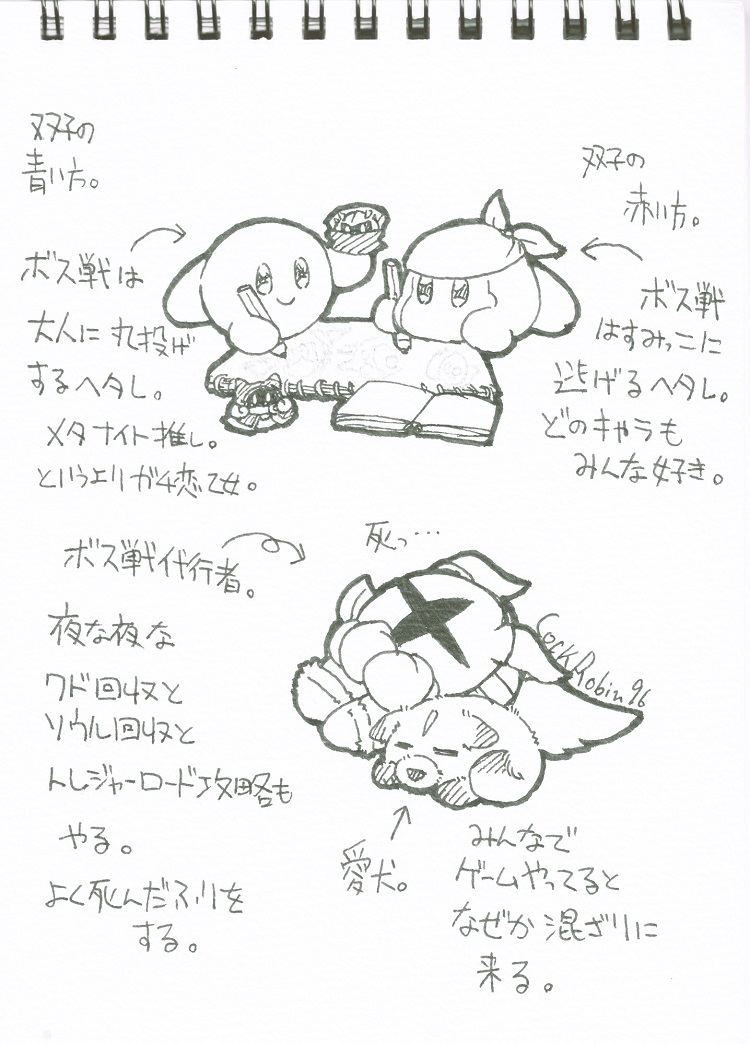 双子の
青い方。
ボス戦は
大人に丸投げ
するヘタレ。
メタナイト推し。
というエリガチ恋乙女。
双子の
赤い方。
ボス戦
はすみっこに
逃げるヘタレ。
どのキャラも
みんな好き。
ボス戦代行者。
夜な夜な
ワド回収と
ソウル回収と
トレジャーロード攻略も
やる。
よく死んだふりを
する。
死っ…
CockRobin96
愛犬。
みんなで
ゲームやってると
なぜか混ざりに
来る。